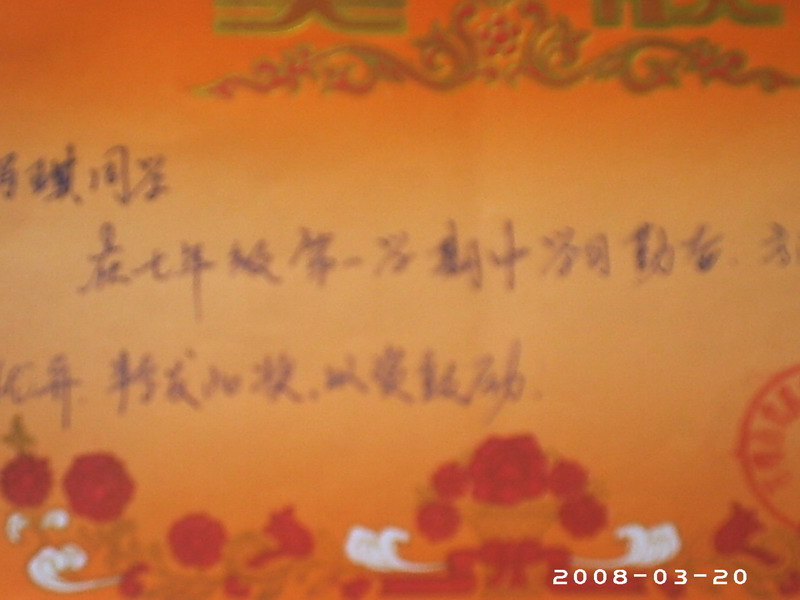 奖
琪同学
在七年级第一学期中 学习勤奋.
优异. 特发此奖.以资鼓励.
2008-03-20